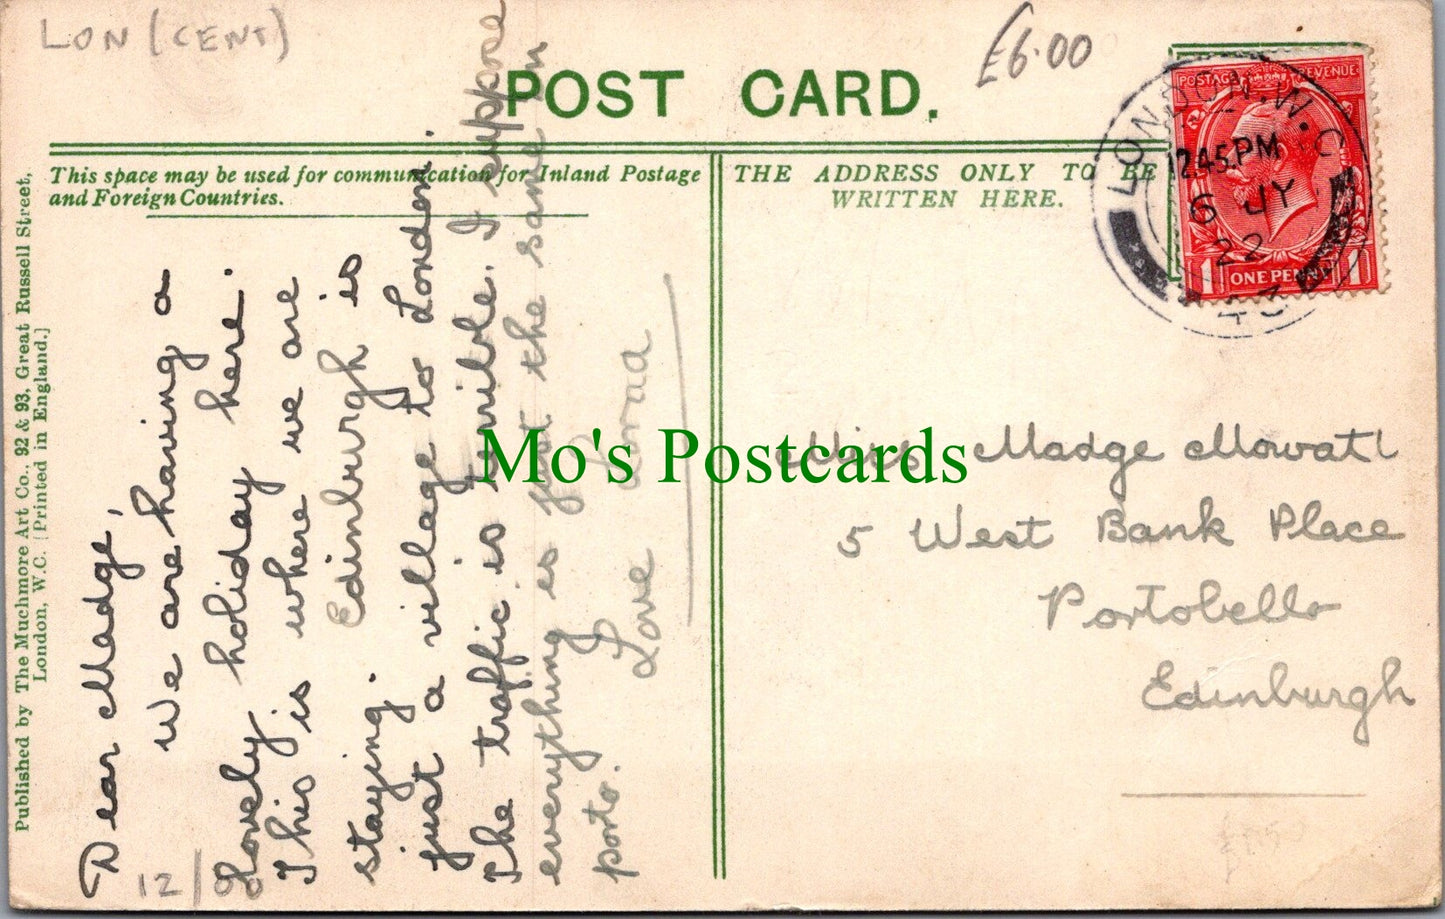 LON (CENT)
£6.00
POST CARD.
This space may be used for communication for Inland Postage
and Foreign Countries.
THE ADDRESS ONLY TO BE
WRITTEN HERE.
POSTAGE REVENUE
1 ONE PENNY 1
LONDON.W.C
12.45 PM
6 JY
22
Published by The Muchmore Art Co., 92 & 93, Great Russell Street,
London, W.C. [Printed in England.]
Dear Madge,
We are having a
lovely holiday here.
This is where we are
staying. Edinburgh is
just a village to London.
The traffic is terrible. I suppose
everything is just the same in
porto.
Love
Miss Madge Mowat
5 West Bank Place
Portobello
Edinburgh
12/
Mo's Postcards